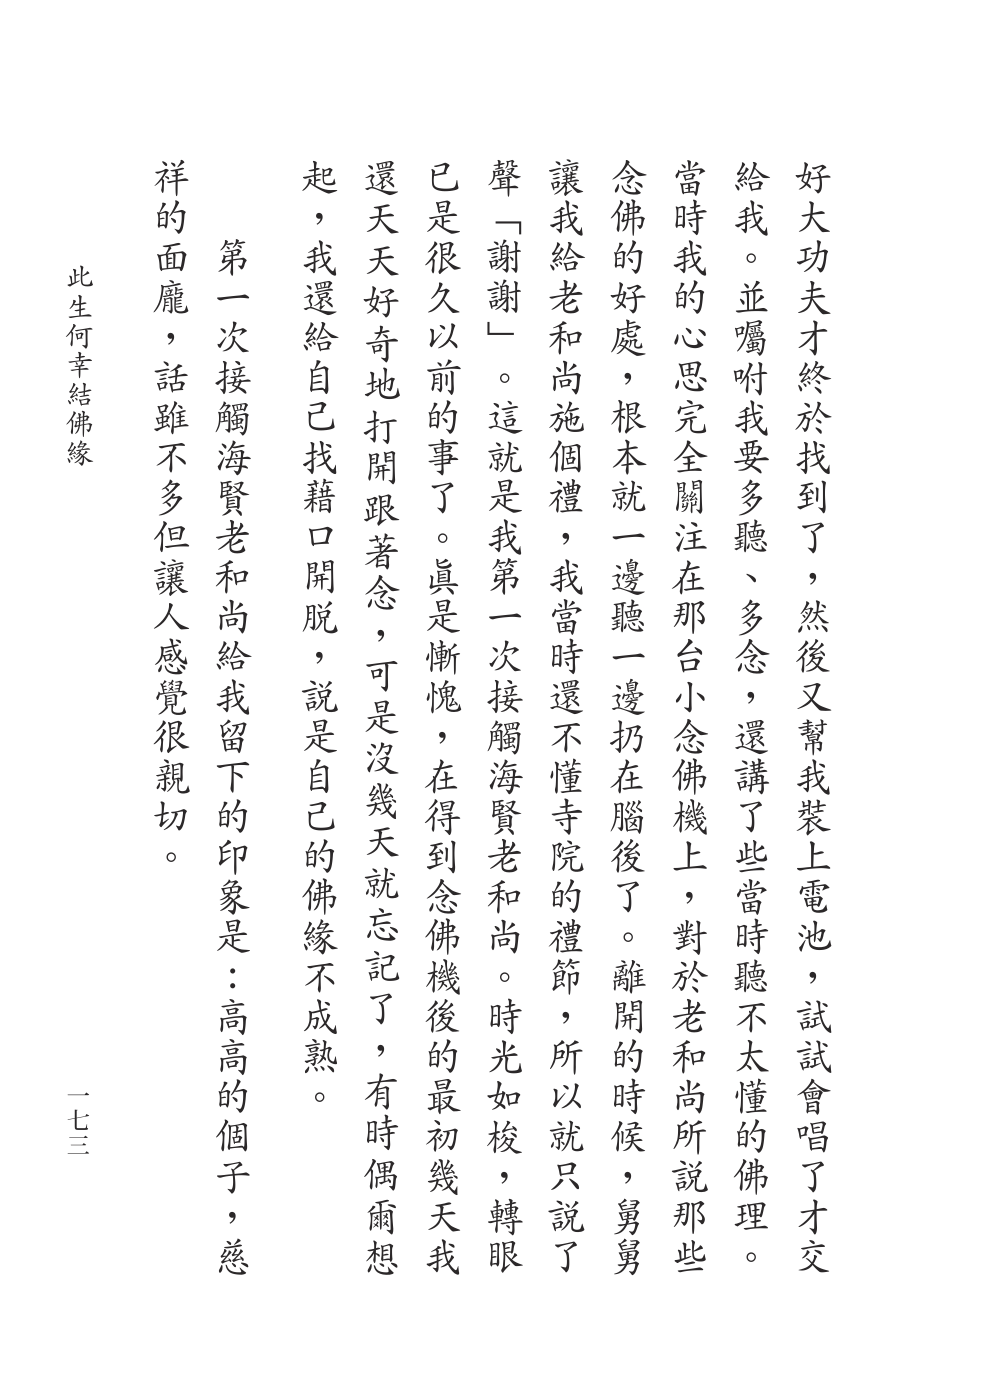 好大功夫才終於找到了，然後又幫我裝上電池，試試會唱了才交
給我。並囑咐我要多聽、多念，還講了些當時聽不太懂的佛理。
當時我的心思完全關注在那台小念佛機上，對於老和尚所説那些
念佛的好處，根本就一邊聽一邊扔在腦後了。離開的時候，舅舅
讓我給老和尚施個禮，我當時還不懂寺院的禮節，所以就只説了
聲「謝謝」。這就是我第一次接觸海賢老和尚。時光如梭，轉眼
已是很久以前的事了。眞是慚愧，在得到念佛機後的最初幾天我
還天天好奇地打開跟著念，可是沒幾天就忘記了，有時偶爾想
起，我還給自己找藉口開脱，説是自己的佛緣不成熟。
第一次接觸海賢老和尚給我留下的印象是：高高的個子，慈
祥的面龐，話雖不多但讓人感覺很親切。
此生何幸結佛緣
一七三